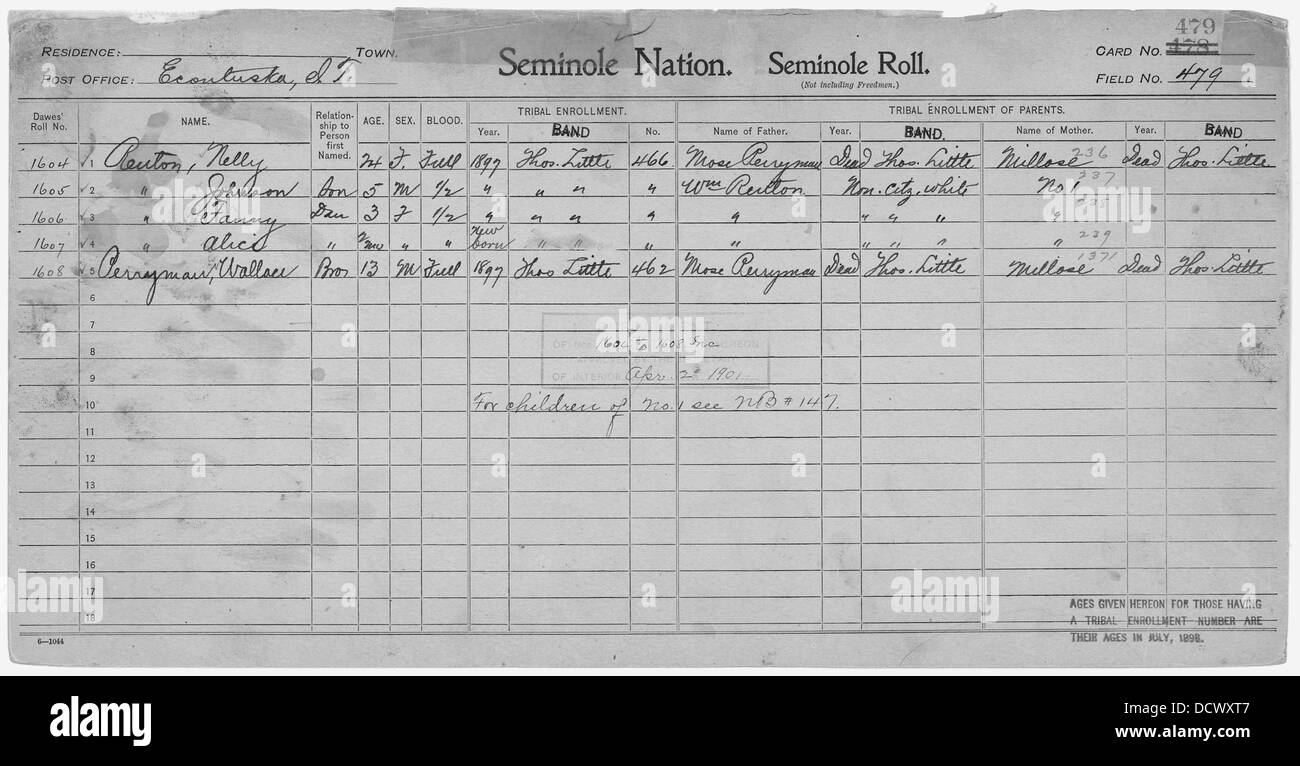 479
RESIDENCE: TOWN. Seminole Nation. Seminole Roll. CARD NO. 478
POST OFFICE: Econtuska, I.T. (Not including Freedmen.) FIELD NO. 479
Dawes' Roll No. NAME. Relationship to Person first Named. AGE. SEX. BLOOD. TRIBAL ENROLLMENT. TRIBAL ENROLLMENT OF PARENTS.
Year. BAND No. Name of Father. Year. BAND. Name of Mother. Year. BAND
1604 √ 1 Renton, Nelly 24 F. Full 1897 Thos. Little 466 Mose Perryman Dead Thos. Little Millose 236 Dead Thos. Little
1605 √ 2 " Johnson Son 5 M 1/2 " " " " Wm Renton Non. Citz. white No 1 237
1606 √ 3 " Fanny Dau 3 F 1/2 " " " " " " " " "
1607 √ 4 " Alice " " " New born " " " " " " " " 239
1608 √ 5 Perryman, Wallace Bro 13 M Full 1897 Thos Little 462 Mose Perryman Dead Thos. Little Millose 1371 Dead Thos. Little
6
7
8 OF Nos. 1604 to 1608 Inc HEREON
APPROVED BY THE SECRETARY
9 OF INTERIOR Apr. 2 1901
10 For children of No. 1 see NB # 147.
11
12
13
14
15
16
17 AGES GIVEN HEREON FOR THOSE HAVING
18 A TRIBAL ENROLLMENT NUMBER ARE
6—1044 THEIR AGES IN JULY, 1898.
a alamy
alamy Image ID: DCWXT7
www.alamy.com